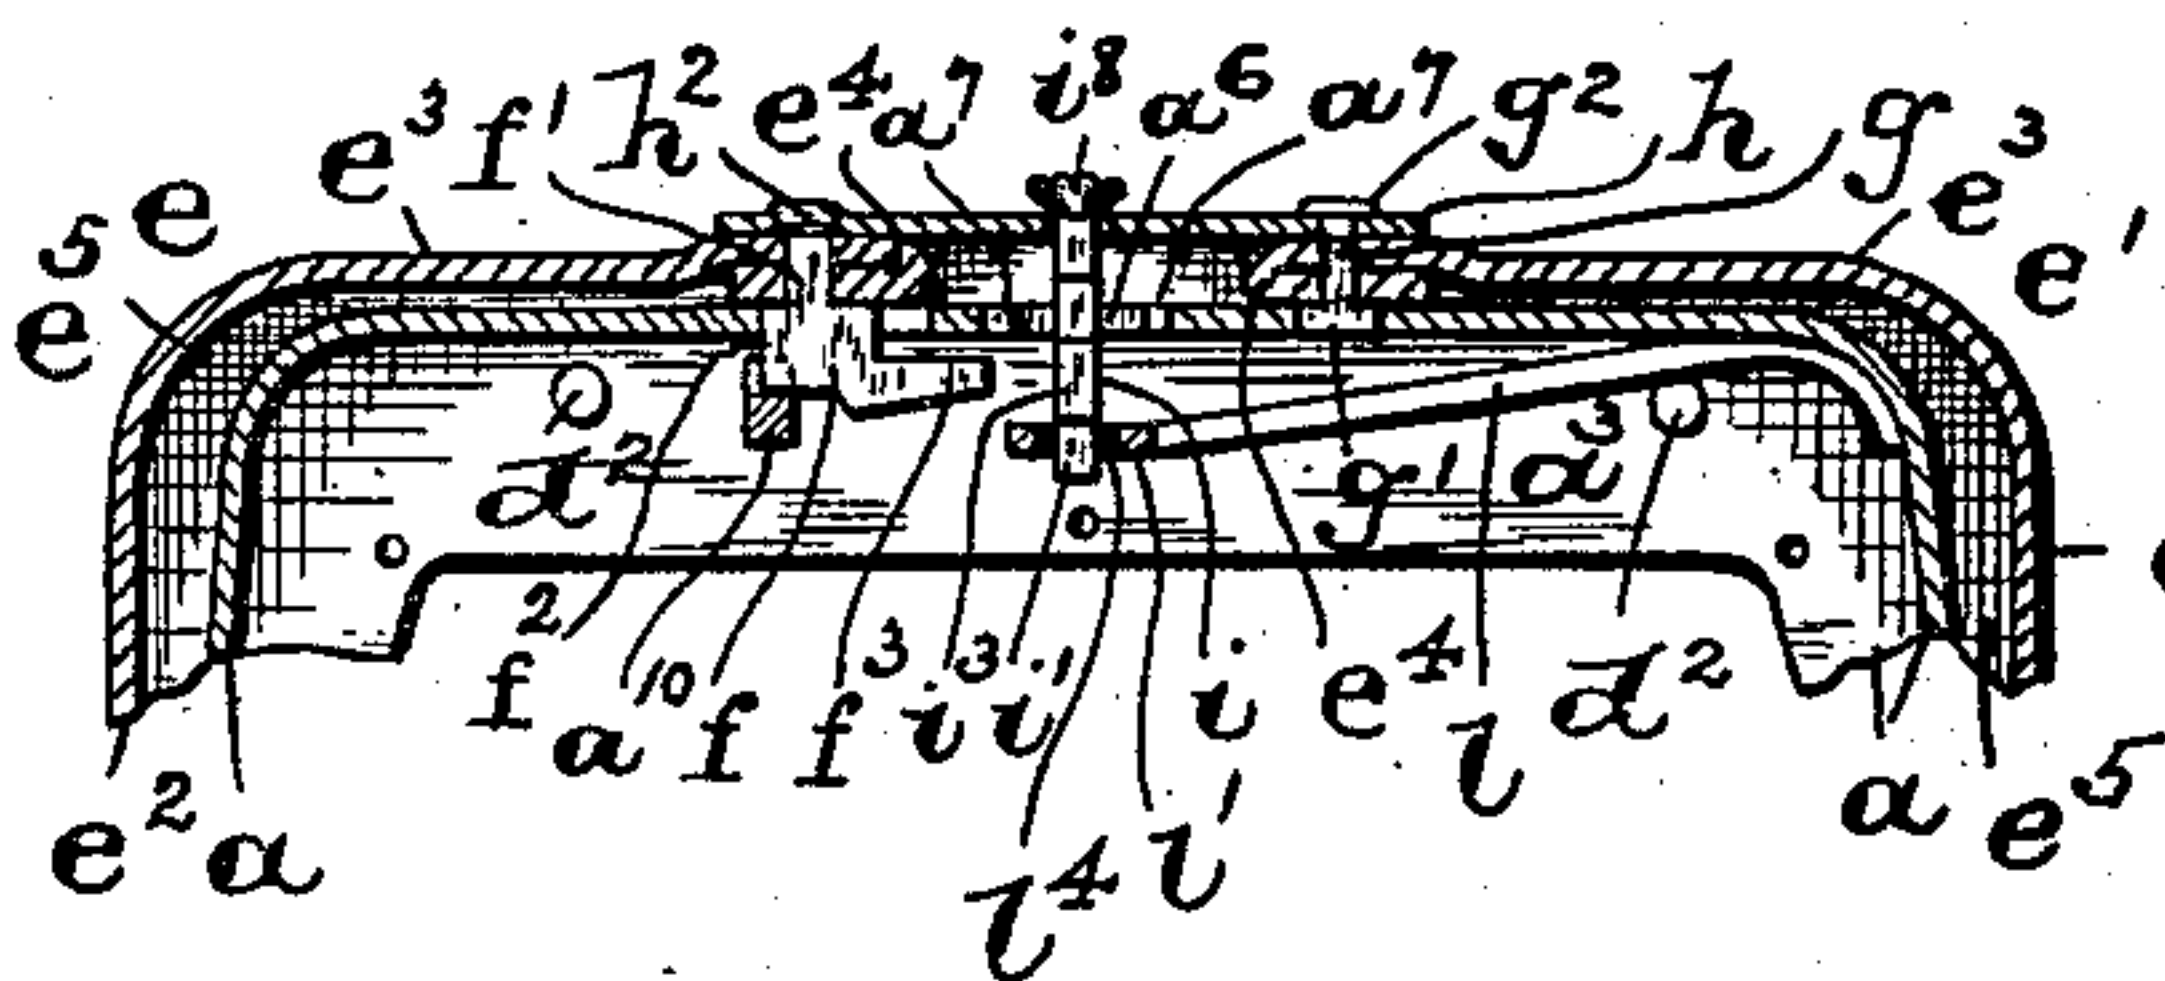 e³ f¹ h² e⁴ a⁷ i⁸ a⁶ a⁷ g² h g e³
e e¹
e⁵
d² g¹ a³
f² a¹⁰ f f³ i³ i¹ i e⁴ l d²
e² a l⁴ l¹ a e⁵